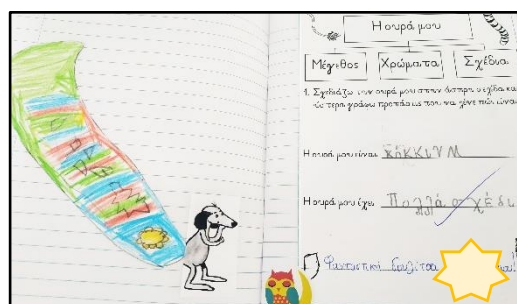 Η ουρά μου
Μέγεθος Χρώματα Σχέδια
1. Σχεδιάζω την ουρά μου στην άσπρη σελίδα και
ύστερα γράφω προτάσεις που να λένε πώς είναι
Η ουρά μου είναι κόκκινη
Η ουρά μου έχει Πολλά σχέδι
Φανταστική δουλίτσα